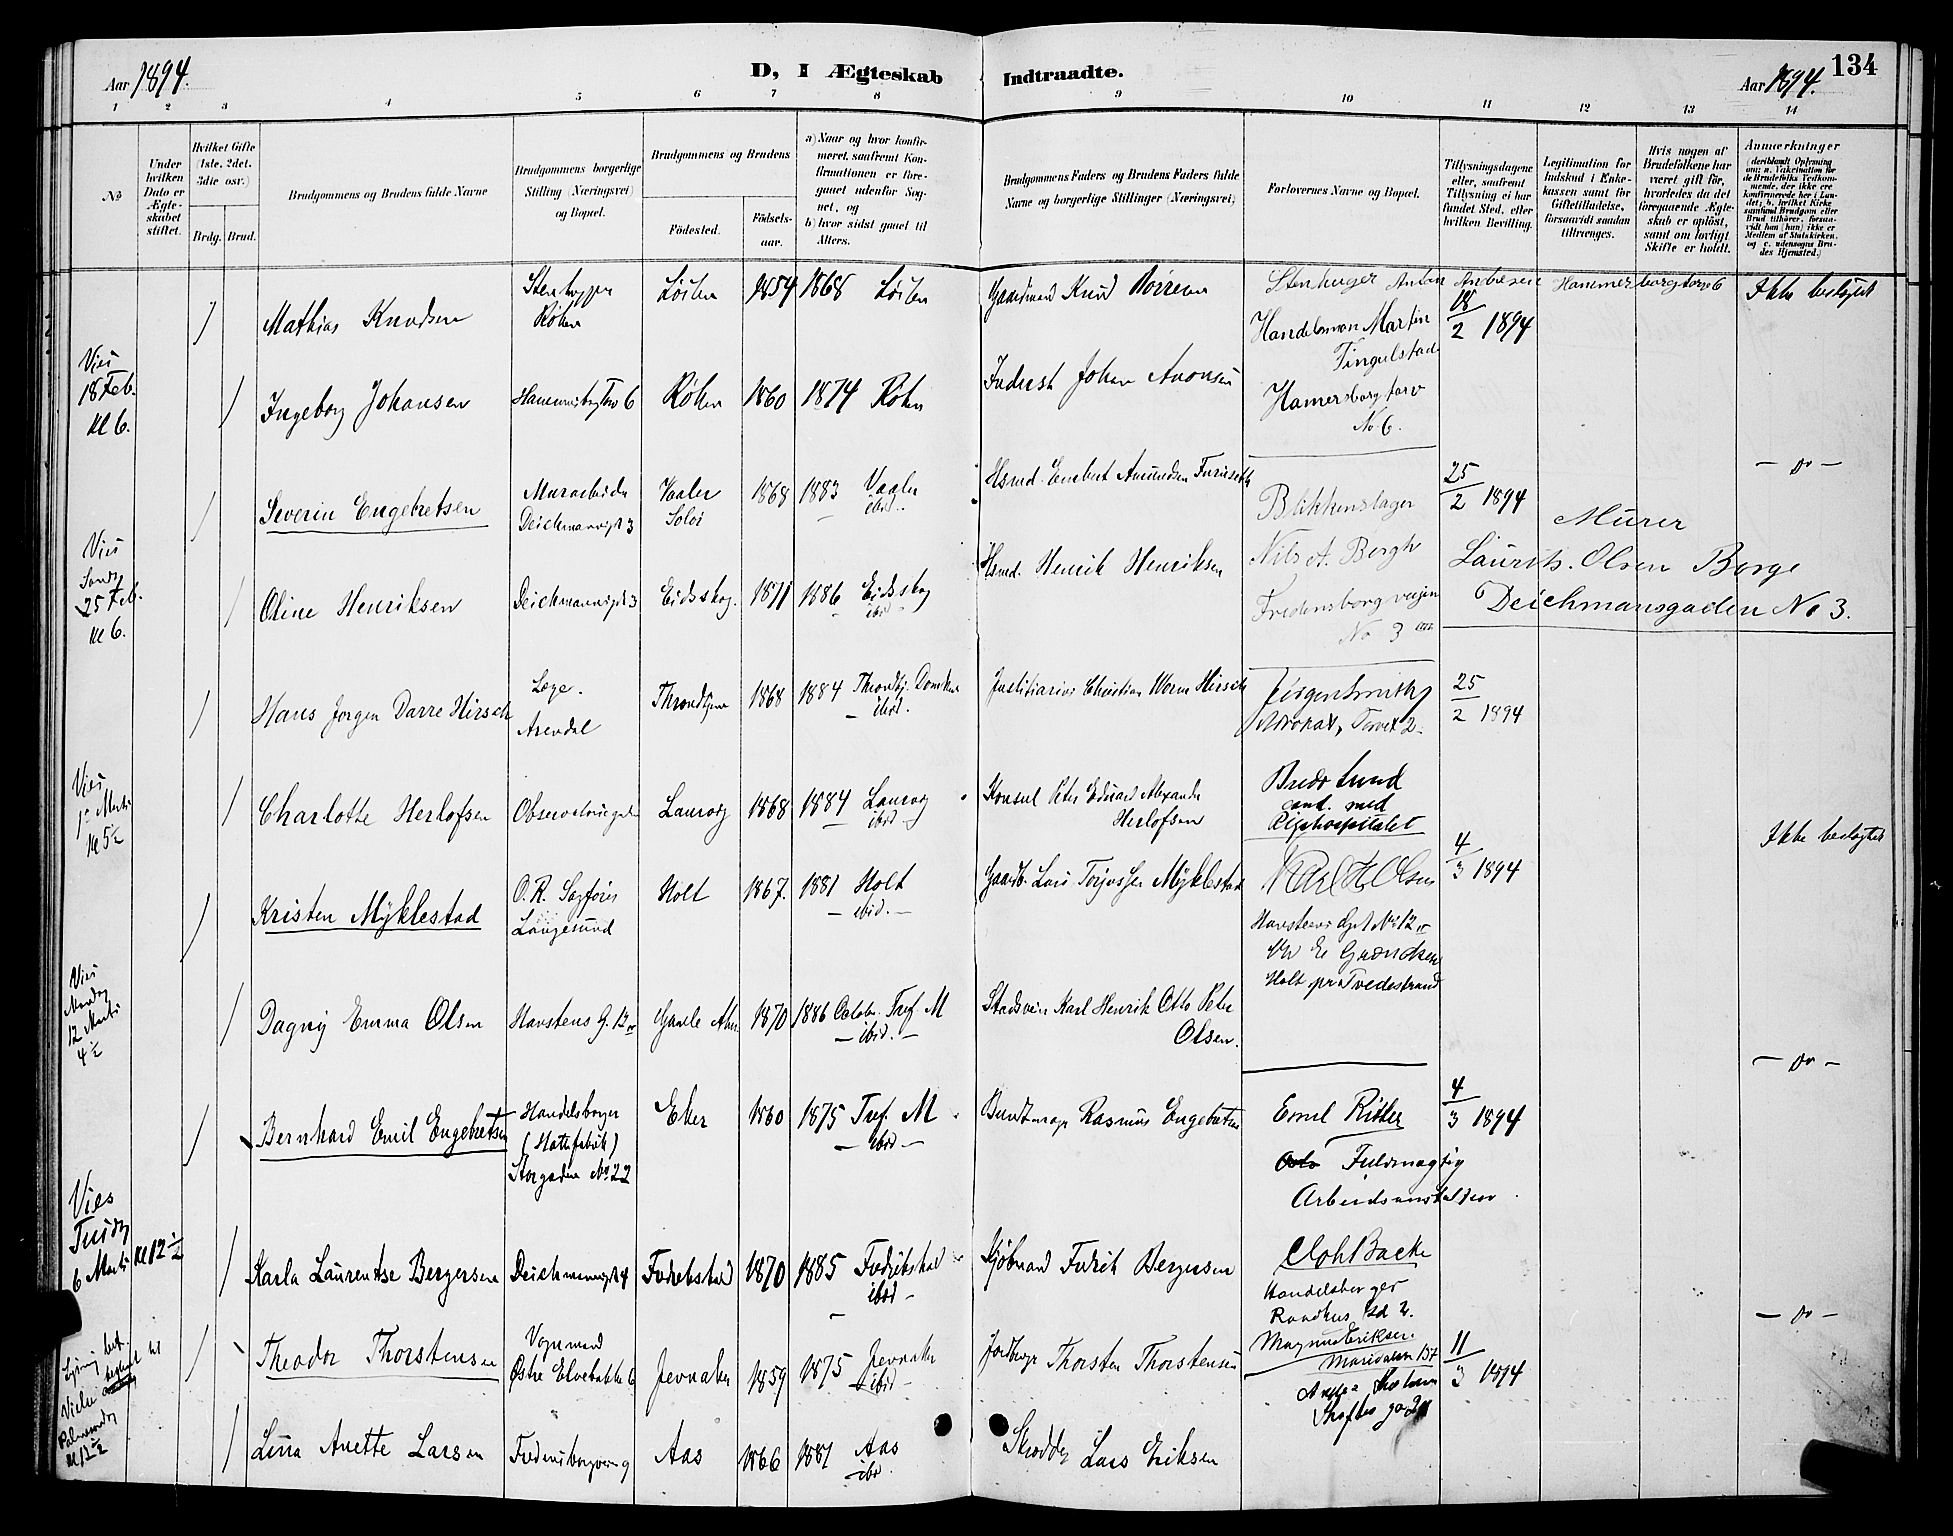 Aar 1894.
D, I Ægteskab Indtraadte.
Aar 1894.
134
1 2 3 4 5 6 7 8 9 10 11 12 13 14
No
Under hvilken Dato er Ægteskabet stiftet.
Hvilket Gifte (1ste. 2det. 3die osv.)
Brdg. Brud.
Brudgommens og Brudens fulde Navne
Brudgommens borgerlige Stilling (Næringsvei) og Bopæl.
Brudgommens og Brudens
Fødested.
Fødselsaar.
a) Naar og hvor konfirmeret, saafremt Konfirmationen er foregaaet udenfor Sognet, og
b) hvor sidst gaaet til Alters.
Brudgommens Faders og Brudens Faders fulde Navne og borgerlige Stillinger (Næringsvei)
Forlovernes Navne og Bopæl.
Tillysningsdagene eller, saafremt Tillysning ei har fundet Sted, efter hvilken Bevilling.
Legitimation for Indskud i Enkekassen samt for Giftetilladelse, forsaavidt saadan tiltrænges.
Hvis nogen af Brudefolkene har været gift før, hvorledes da det foregaaende Ægteskab er opløst, samt om lovligt Skifte er holdt.
Anmærkninger
(deriblandt Oplysning om: a. Vakcination for de Brudefolks Vedkommende, der ikke ere konfirmerede her i Landet; b. hvilket Kirkesamfund Brudgom eller Brud tilhører, forsaavidt han (hun) ikke er Medlem af Statskirken, og c. udensogns Brudes Hjemsted.)
/ Mathias Knudsen Stenhugger Røken Løiten 1854 1868 Løiten Gaardmand Knud
Stenhuger Anton Andresen Hammerborgtorv 6
Handelsman Martin Tingulstad
Hamersborg torv No. 6.
18/2 1894 Ikke beslægtet
Viet 18 Feb. Kl 6.
/ Ingeborg Johansen 6 Røken 1860 1874 Røken Inderst Johan
/ Severin Engebretsen Murarbeider Deichmansgt 3 Vaaler Solør 1868 1883 Vaaler ibid. Hsmd. Engebret Amundsen Furuseth
Blikkenslager Nils A. Bergh
Fredensborg veien No 3 III
25/2 1894 Murer
Laurits. Olsen Borge
Deichmansgaden No 3.
— do —
Viet Sønd. 25 Feb. Kl 6.
/ Oline Henriksen Deichmansgt 3 Eidsskog. 1871 1886 Eidsskog ibid Hsmd. Henrik Henriksen
/ Hans Jørgen Darre Hirsch Læge. Arendal Throndhjem 1868 1884 Throndhj. Domkirke ibid. Justitiarius Christian Worm Hirsch
Jørgen Smith
Advokat, Torvet 2.
25/2 1894
Viet 1ste Marts Kl 5½
/ Charlotte Herlofsen Laurvig 1868 1884 Laurvig ibid Konsul Peter Eduard Alexander Herlofsen
Bredo Lund
cand. med
Rigshospitalet
/ Kristen Myklestad O.R. Sagfører Langesund Holt 1867. 1881 Holt ibid. Gaardb. Lars Myklestad
Karl H Olsen
Havsteens Gd No 12 II
Holt pr Tvedestrand
4/3 1894 Ikke beslægtet
Viet Mandag 12 Marts 4½
/ Dagny Emma Olsen Havstens G. 12 II Gamle Aker 1870 1886 Tref. M ibid. Karl Henrik Otto Peter Olsen.
/ Bernhard Emil Engebretsen Handelsborger (Hattefabrik) Storgaden No 22 Eker 1860 1875 Tref. M ibid Buntmager Rasmus Engebretsen
Emil Ritter
Fuldmægtig
Arbeidsanstalten.
4/3 1894 — do —
Viet Tirsdag 6 Marts Kl 12½
/ Karla Laurentse Bergersen Deichmansgt 4 Fredrikstad 1870 1885 Fredrikstad ibid Sjømand Fredrik Bergersen
Joh Backe
Handelsborger
/ Theodor Thorstensen Vognmand Østre Elvebakke 6 Jevnaker 1859 1875 Jevnaker ibid Jordbruger Thorsten Thorstensen
Magnus Eriksen.
Maridalsv 157
11/3 1894 — do —
Kl 12½
/ Lina Anette Larsen Fredensborgveien 9 Aas 1866 1881 Aas ibd. Skrædder Lars Eriksen